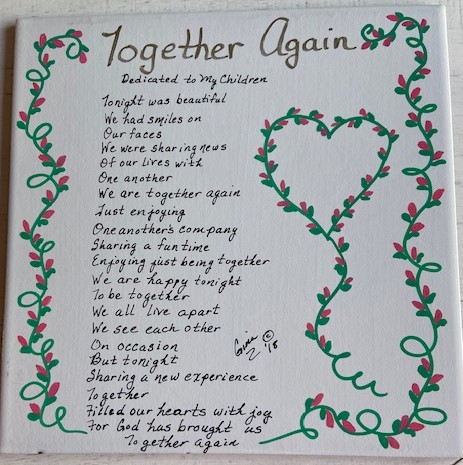 Together Again
Dedicated to My Children
Tonight was beautiful
We had smiles on
Our faces
We were sharing news
Of our lives with
One another
We are together again
Just enjoying
One another's company
Sharing a fun time
Enjoying just being together
We are happy tonight
To be together
We all live apart
We see each other
On occasion
But tonight
Sharing a new experience
Together
Filled our hearts with joy
For God has brought us
Together again
© '18